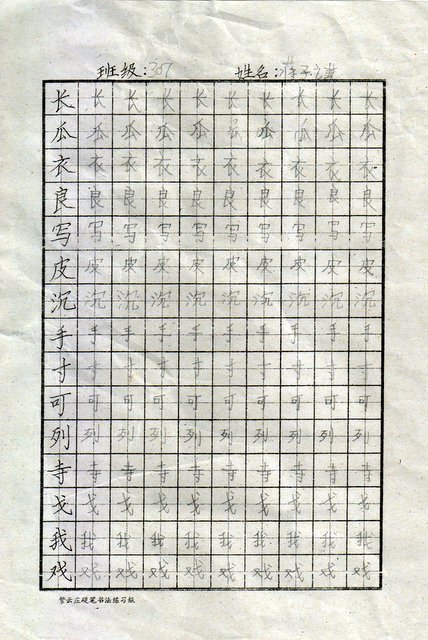 班级:307 姓名:
长 长 长 长 长 长 长 长 长 长
瓜 瓜 瓜 瓜 瓜 瓜 瓜 瓜 瓜 瓜
衣 衣 衣 衣 衣 衣 衣 衣 衣 衣
良 良 良 良 良 良 良 良 良 良
写 写 写 写 写 写 写 写 写 写
皮 皮 皮 皮 皮 皮 皮 皮 皮 皮
沉 沉 沉 沉 沉 沉 沉 沉 沉 沉
手 手 手 手 手 手 手 手 手 手
寸 寸 寸 寸 寸 寸 寸 寸 寸 寸
可 可 可 可 可 可 可 可 可 可
列 列 列 列 列 列 列 列 列 列
寺 寺 寺 寺 寺 寺 寺 寺 寺 寺
戈 戈 戈 戈 戈 戈 戈 戈 戈 戈
我 我 我 我 我 我 我 我 我 我
戏 戏 戏 戏 戏 戏 戏 戏 戏 戏
紫云庄硬笔书法练习纸